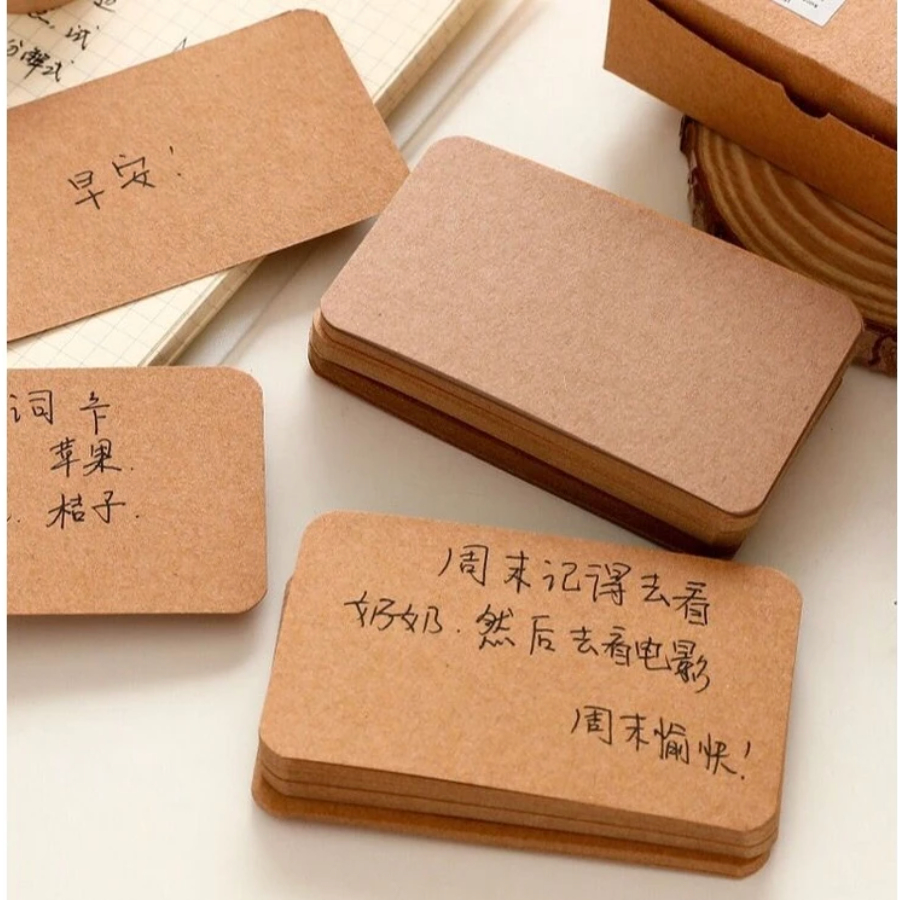 试
解式
早安!
词卡
苹果.
桔子.
周末记得去看
奶奶.然后去看电影
周末愉快!